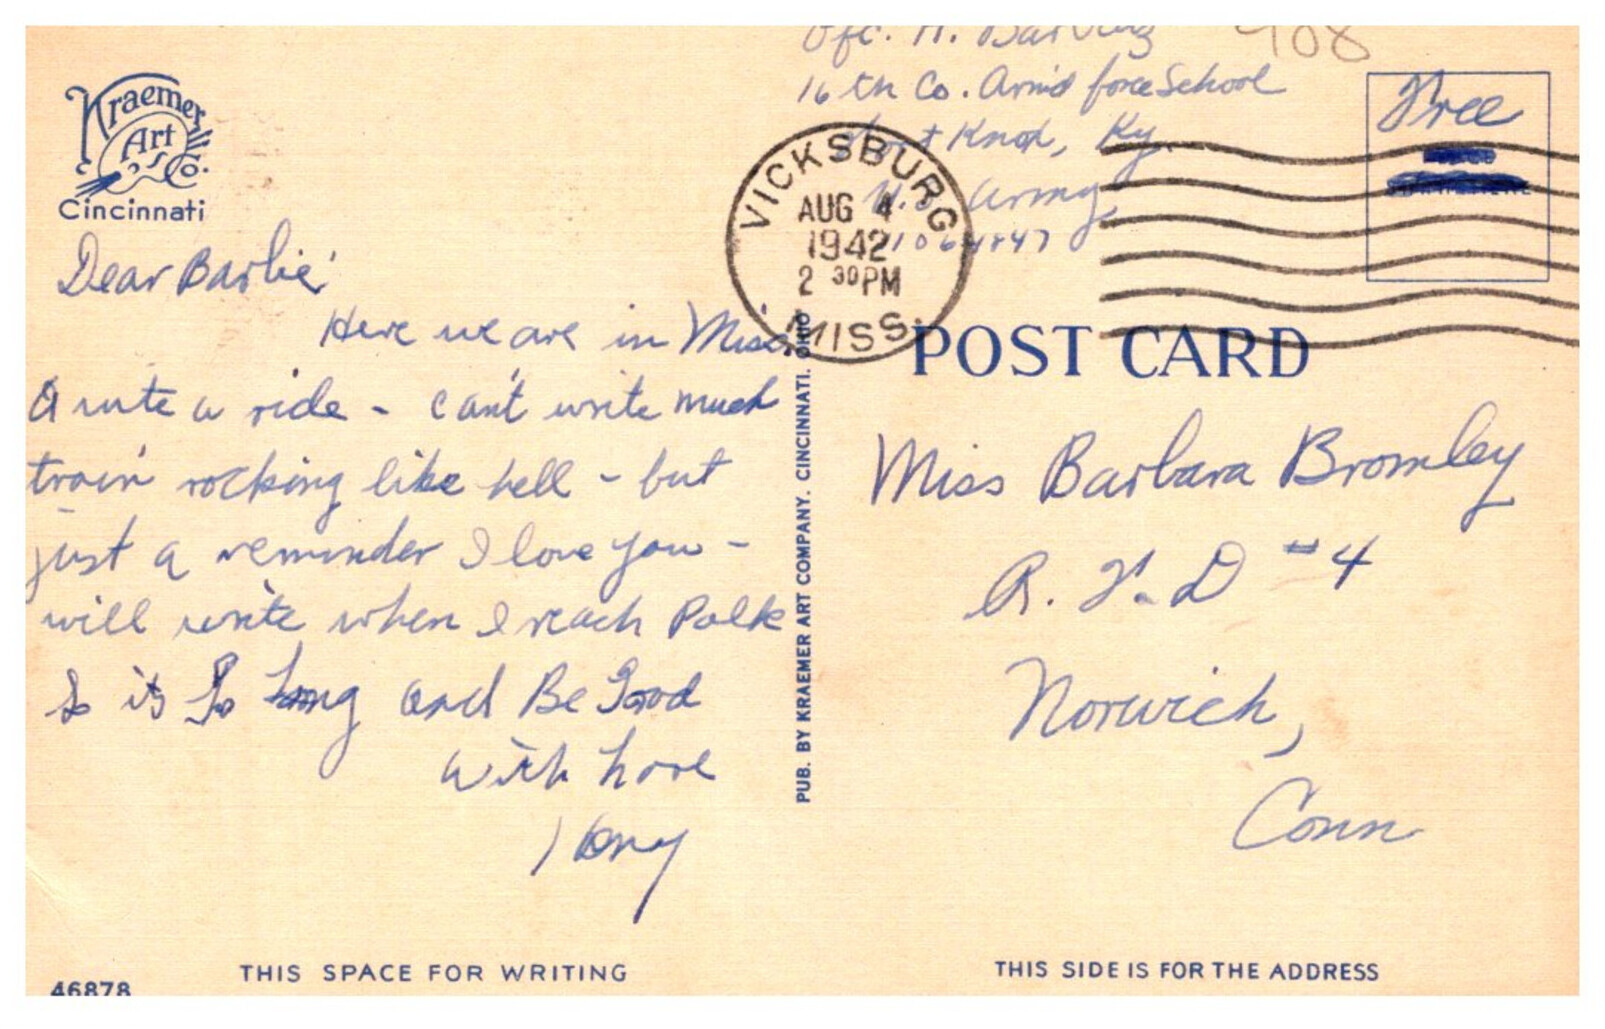 Kraemer
Art
Co.
Cincinnati
Dear Barbie'
Here we are in Miss.
Quite a ride - can't write much
train rocking like hell - but
just a reminder I love you -
will write when I reach Polk
So it's So Long and Be Good
With Love
THIS SPACE FOR WRITING
46878
PUB. BY KRAEMER ART COMPANY. CINCINNATI. OHIO
Pfc. H.
908
16th Co. Arm'd force School
Fort Knox, Ky.
U.S. Army
Free
VICKSBURG
AUG 4
1942
2 30PM
MISS.
POST CARD
Miss Barbara Bromley
R. F. D #4
Norwich,
Conn
THIS SIDE IS FOR THE ADDRESS